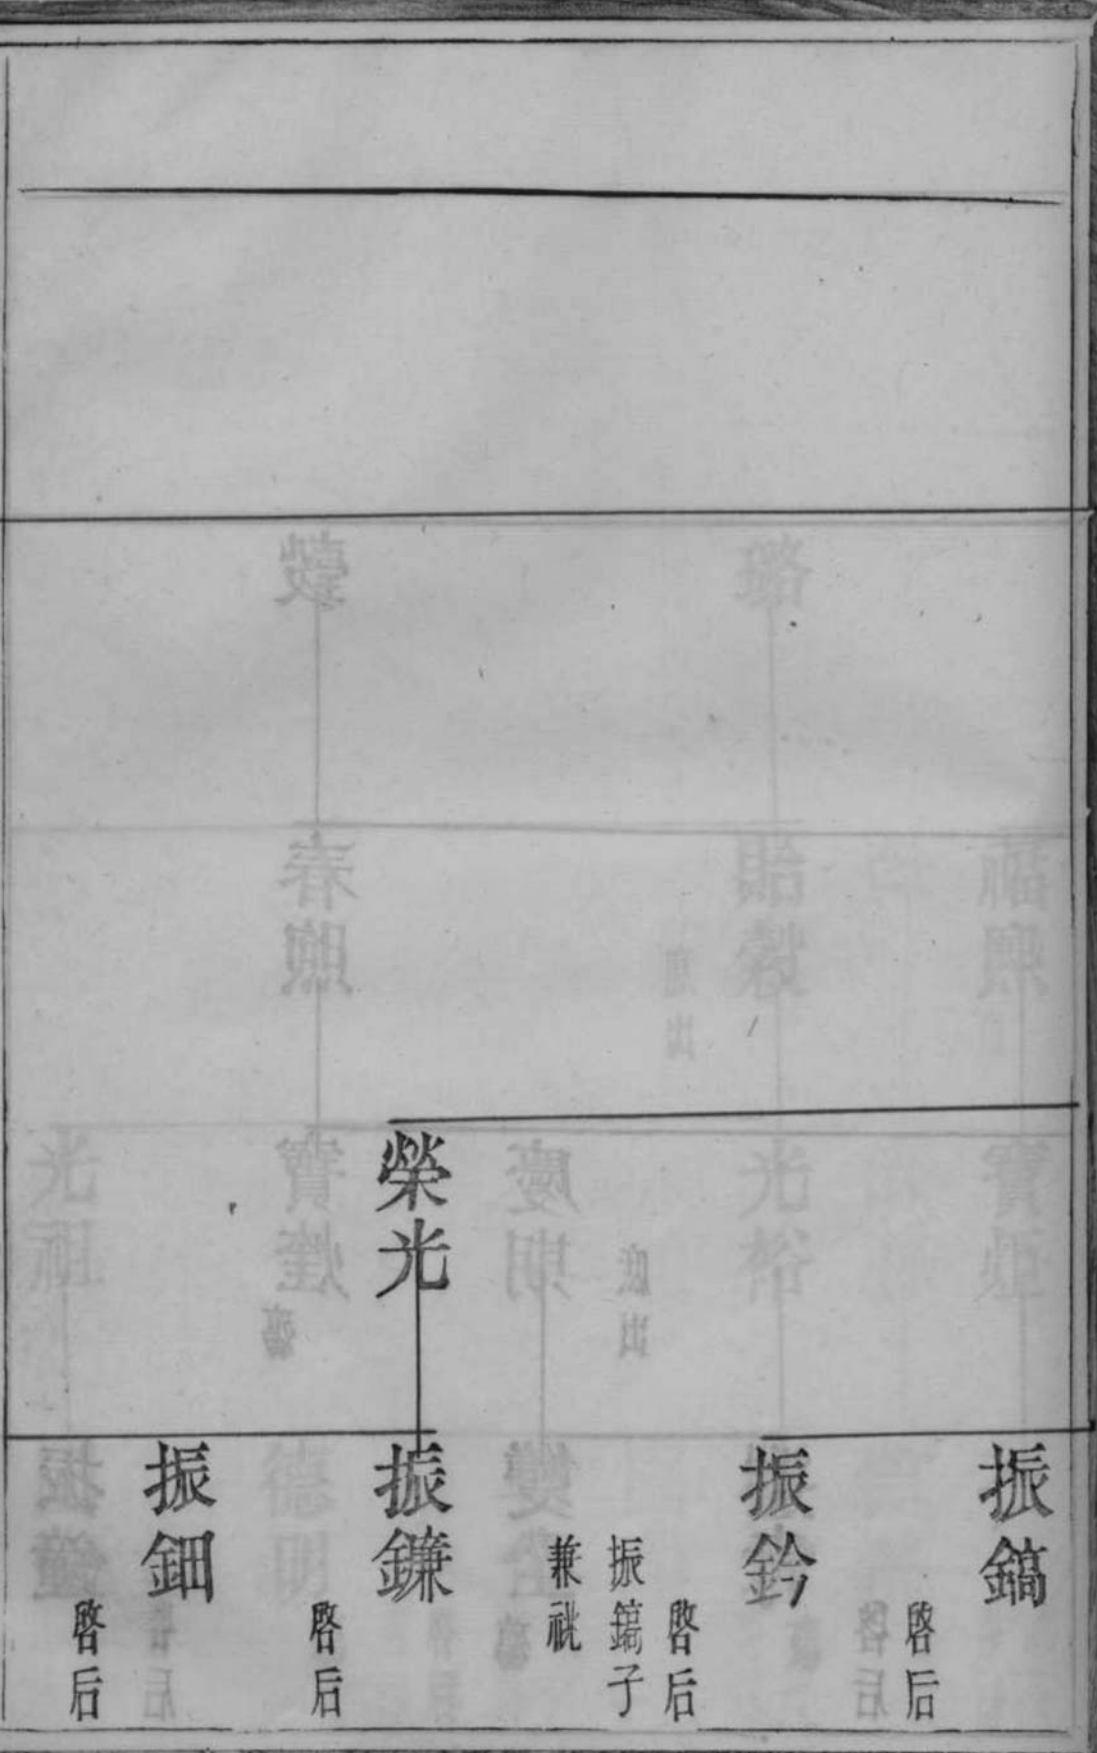 振鎬
啓后
振鈐
啓后
振鎬子
兼祧
榮光
振鐮
啓后
振鈿
啓后